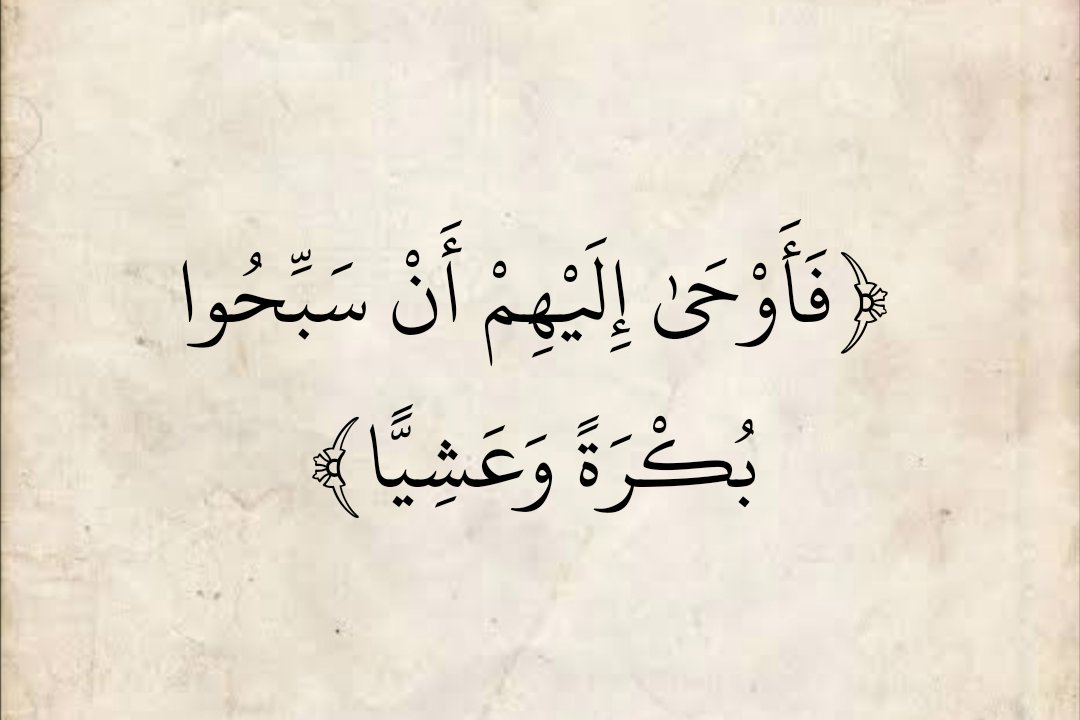 ﴿فَأَوْحَىٰ إِلَيْهِمْ أَنْ سَبِّحُوا
بُكْرَةً وَعَشِيًّا﴾